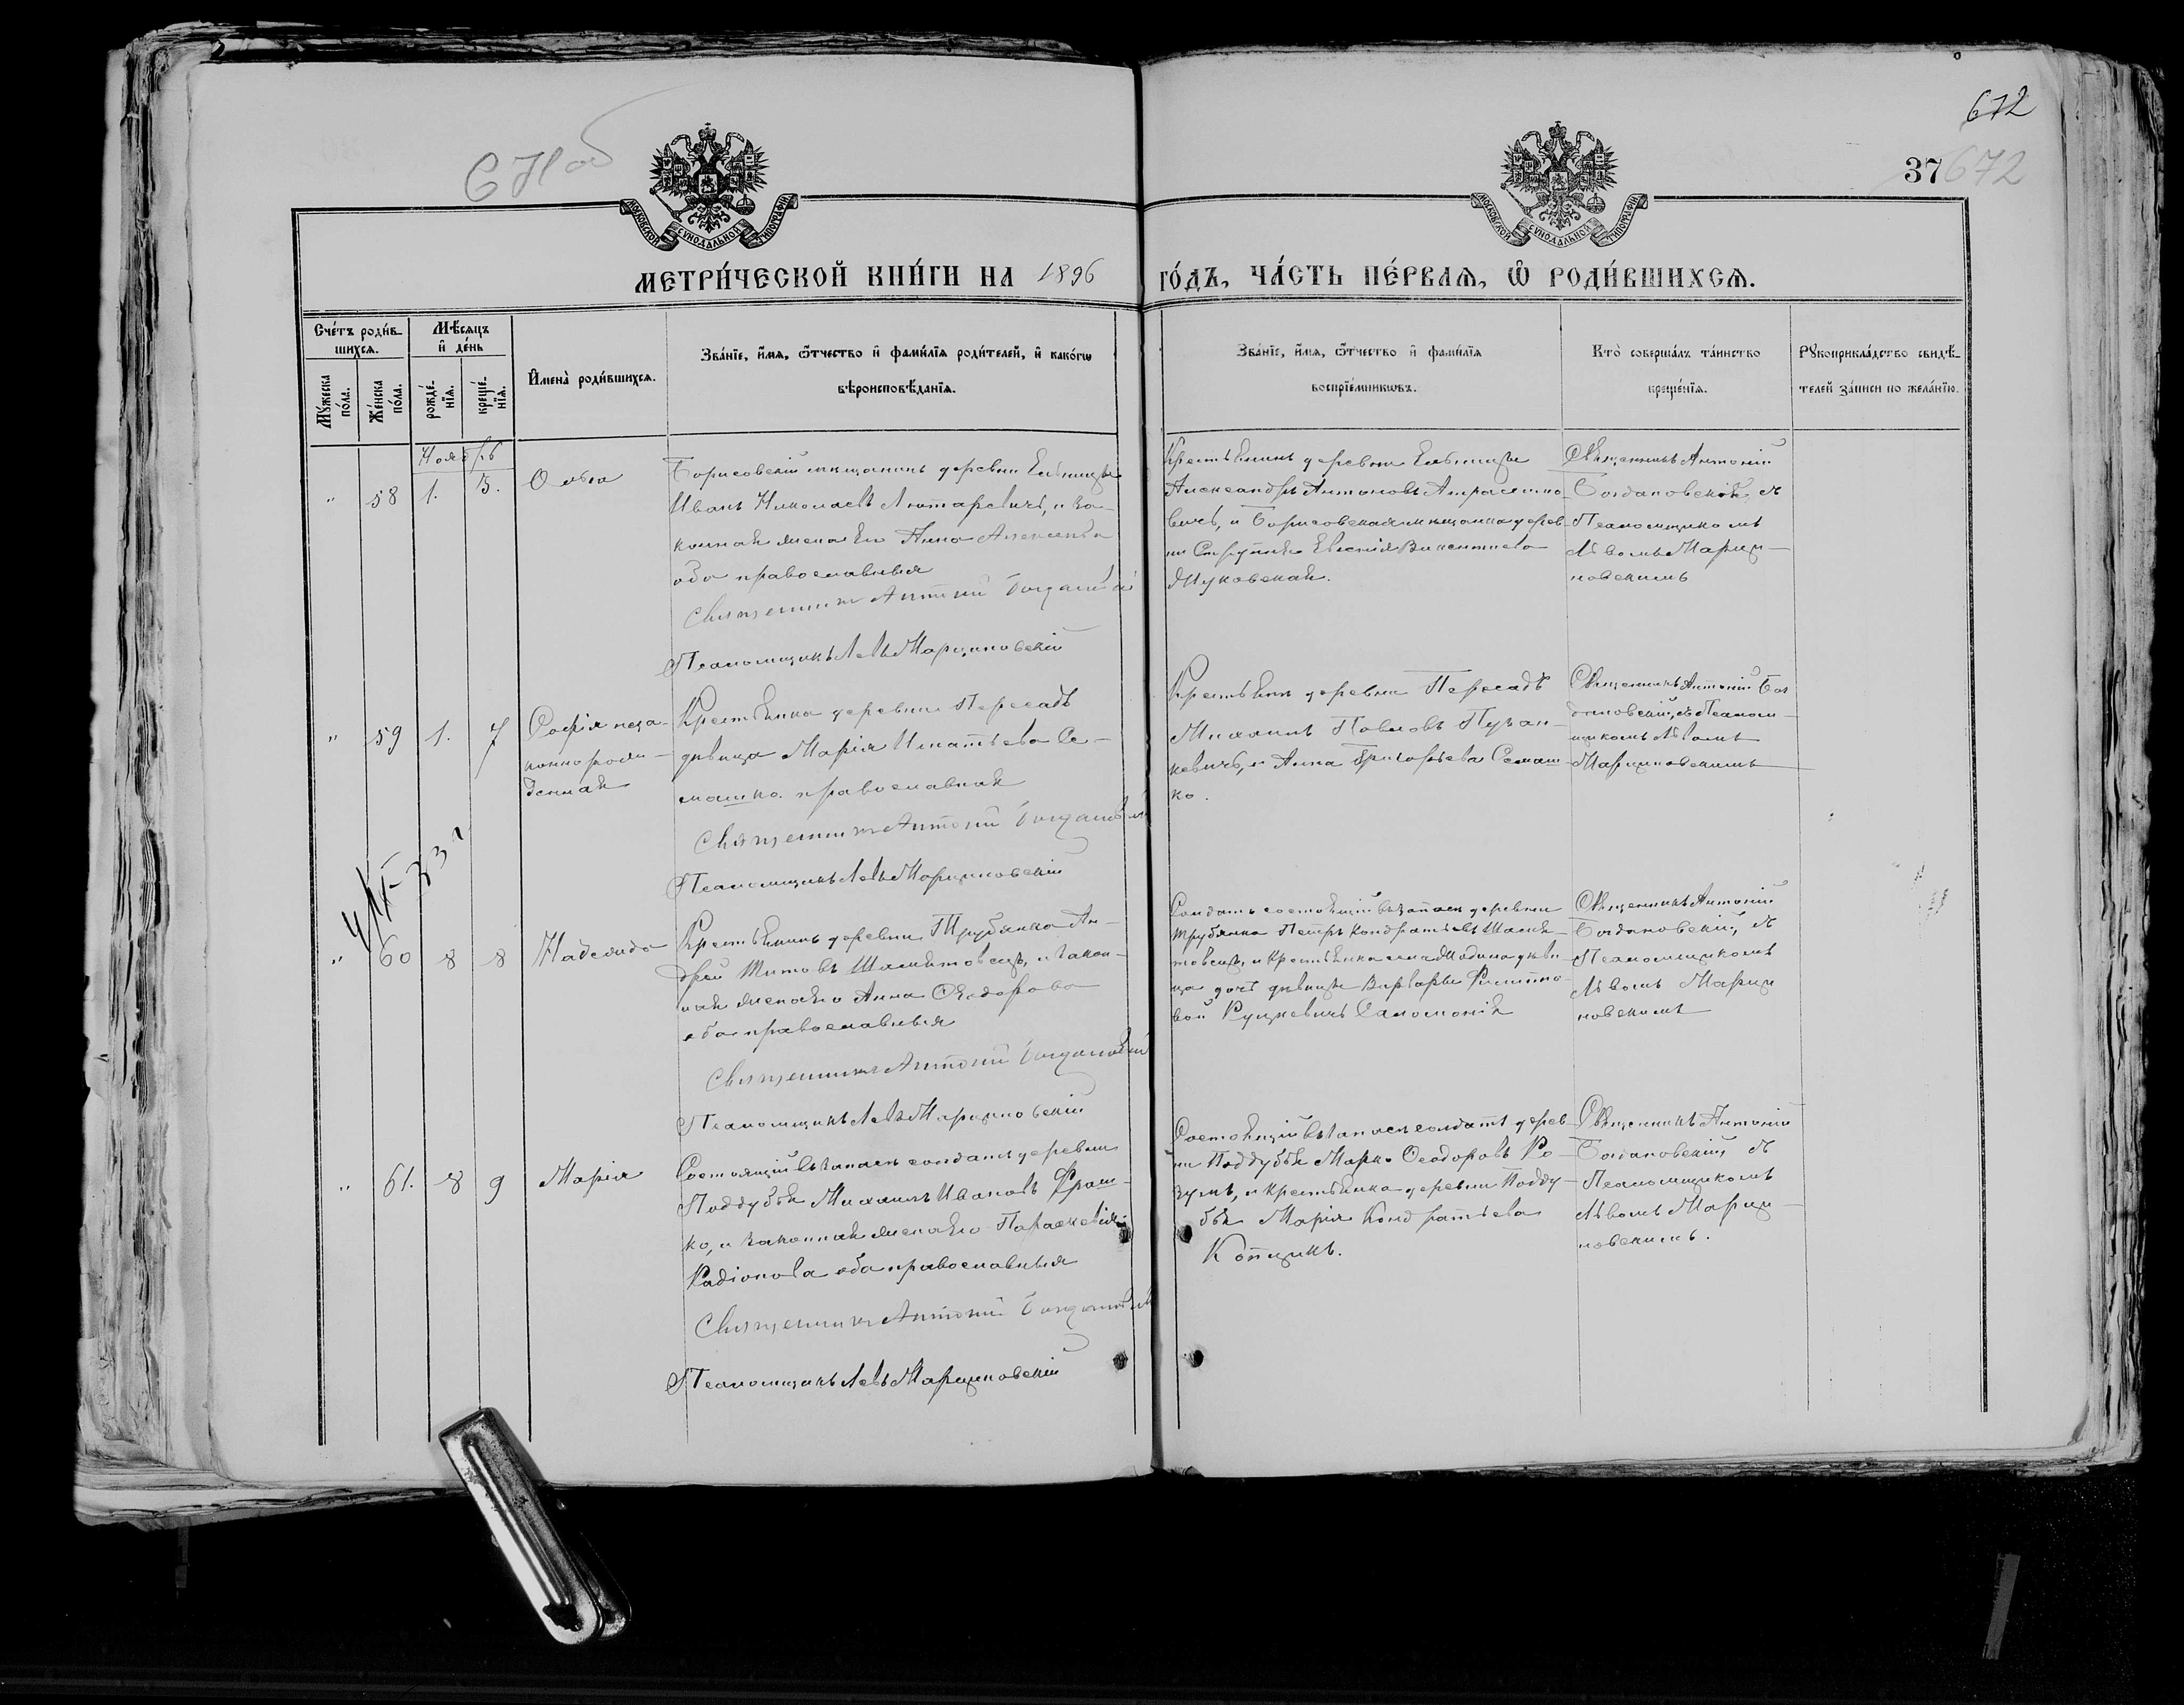 672
37 672
МОСКОВСКОЙ СѴНОДАЛЬНОЙ ТИПОГРАФІИ
МОСКОВСКОЙ СѴНОДАЛЬНОЙ ТИПОГРАФІИ
МЕТРИ́ЧЕСКОЙ КНИ́ГИ НА 1896 ГО́ДЪ, ЧА́СТЬ ПЕ́РВАѦ, Ѽ РОДИ́ВШИХСѦ.
Сче́тъ роди́в-
шихсѧ.
Мꙋ́жеска
по́ла.
Же́нска
по́ла.
Мѣ́сѧцъ
и҆ де́нь
рожде́-
нїѧ.
креще́-
нїѧ.
И҆мена̀ роди́вшихсѧ.
Зва́нїе, и҆́мѧ, ѻ҆́тчество и҆ фами́лїѧ роди́телей, и҆ како́гѡ
вѣроисповѣ́данїѧ.
Зва́нїе, и҆́мѧ, ѻ҆́тчество и҆ фами́лїѧ
воспрїе́мникѡвъ.
Кто̀ соверша́лъ та́инство
креще́нїѧ.
Рꙋкоприкла́дство свидѣ́-
телей за́писи по жела́нїю.
Ноябрь
" 58 1. 3. Ольга
Борисовскій мѣщанинъ деревни
Иванъ Николаевъ Лютаревичъ, и за-
конная жена его Анна Алексеева
оба православныя
Священникъ Антоній Богдановскій
Псаломщикъ Левъ Марциновскій
Крестьянинъ деревни
Александръ Антоновъ
вичъ, и Борисовская мѣщанка дерев-
ни Викентиева
Жуковская.
Священникъ Антоній
Богдановскій, съ
Псаломщикомъ
Львомъ Марци-
новскимъ
" 59 1. 7 Софія неза-
коннорож-
денная
Крестьянка деревни Пересадъ
дѣвица Марія Игнатьева Се-
машко. православная
Священникъ Антоній Богдановскій
Псаломщикъ Левъ Марциновскій
Крестьянинъ деревни Пересадъ
Михаилъ Павловъ Пузан-
кевичъ, и Анна Григорьева Семаш-
ко.
Священникъ Антоній Бог
дановскій, съ Псалом-
щикомъ Львомъ
Марциновскимъ
" 60 8 8 Надежда
Крестьянинъ деревни Трубянка Ан-
дрей Титовъ Шаметовецъ, и закон-
ная жена его Анна Ѳеодорова
оба православныя
Священникъ Антоній Богдановскій
Псаломщикъ Левъ Марциновскій
Солдатъ состоящій въ запасѣ деревни
Трубянка Петръ Кондратьевъ Шаме-
товецъ, и Крестьянка дѣви-
ца дочь дѣвицы Варвары
вой Рудкевичъ Саломонія
Священникъ Антоній
Богдановскій, съ
Псаломщикомъ
Львомъ Марци
новскимъ
" 61. 8 9 Марія
Состоящій въ запасѣ солдатъ деревни
Поддубья Михаилъ Ивановъ Фраш-
ко, и законная жена его Параскевія
Радіонова оба православныя
Священникъ Антоній Богдановскій
Псаломщикъ Левъ Марциновскій
Состоящій въ запасѣ солдатъ дерев-
ни Поддубья Марко Ѳеодоровъ Ро-
зумъ, и Крестьянка деревни Подду-
бья Марія Кондратьева
Котцикъ.
Священникъ Антоній
Богдановскій съ
Псаломщикомъ
Львомъ Марци-
новскимъ.